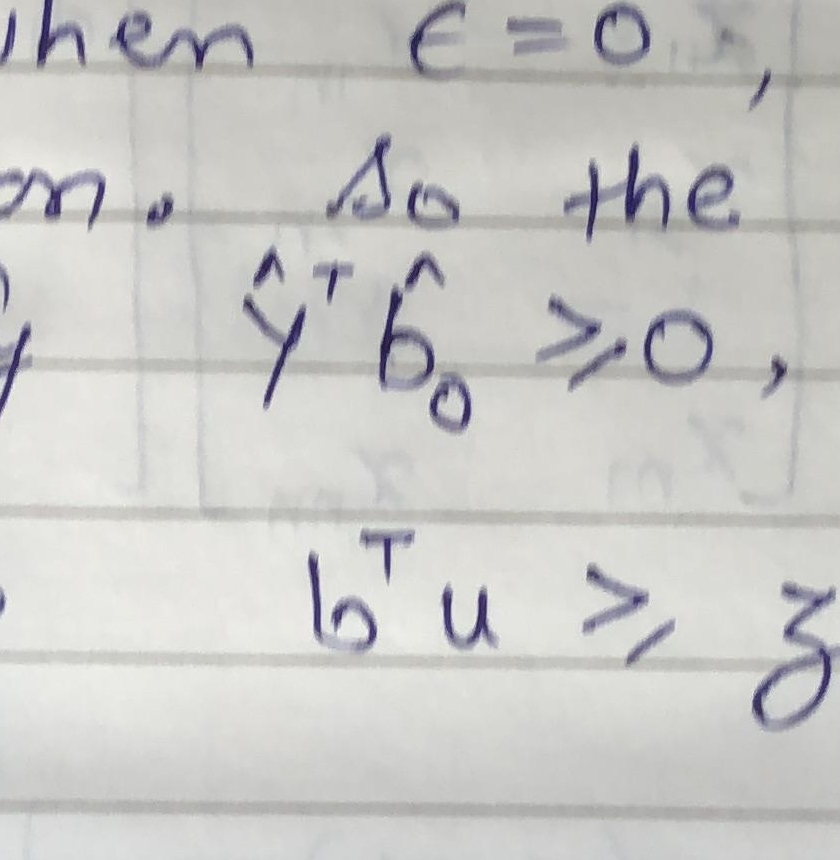 when ϵ = 0,
on. So the
ŷᵀ b̂₀ ⩾ 0,
bᵀ u ⩾ z